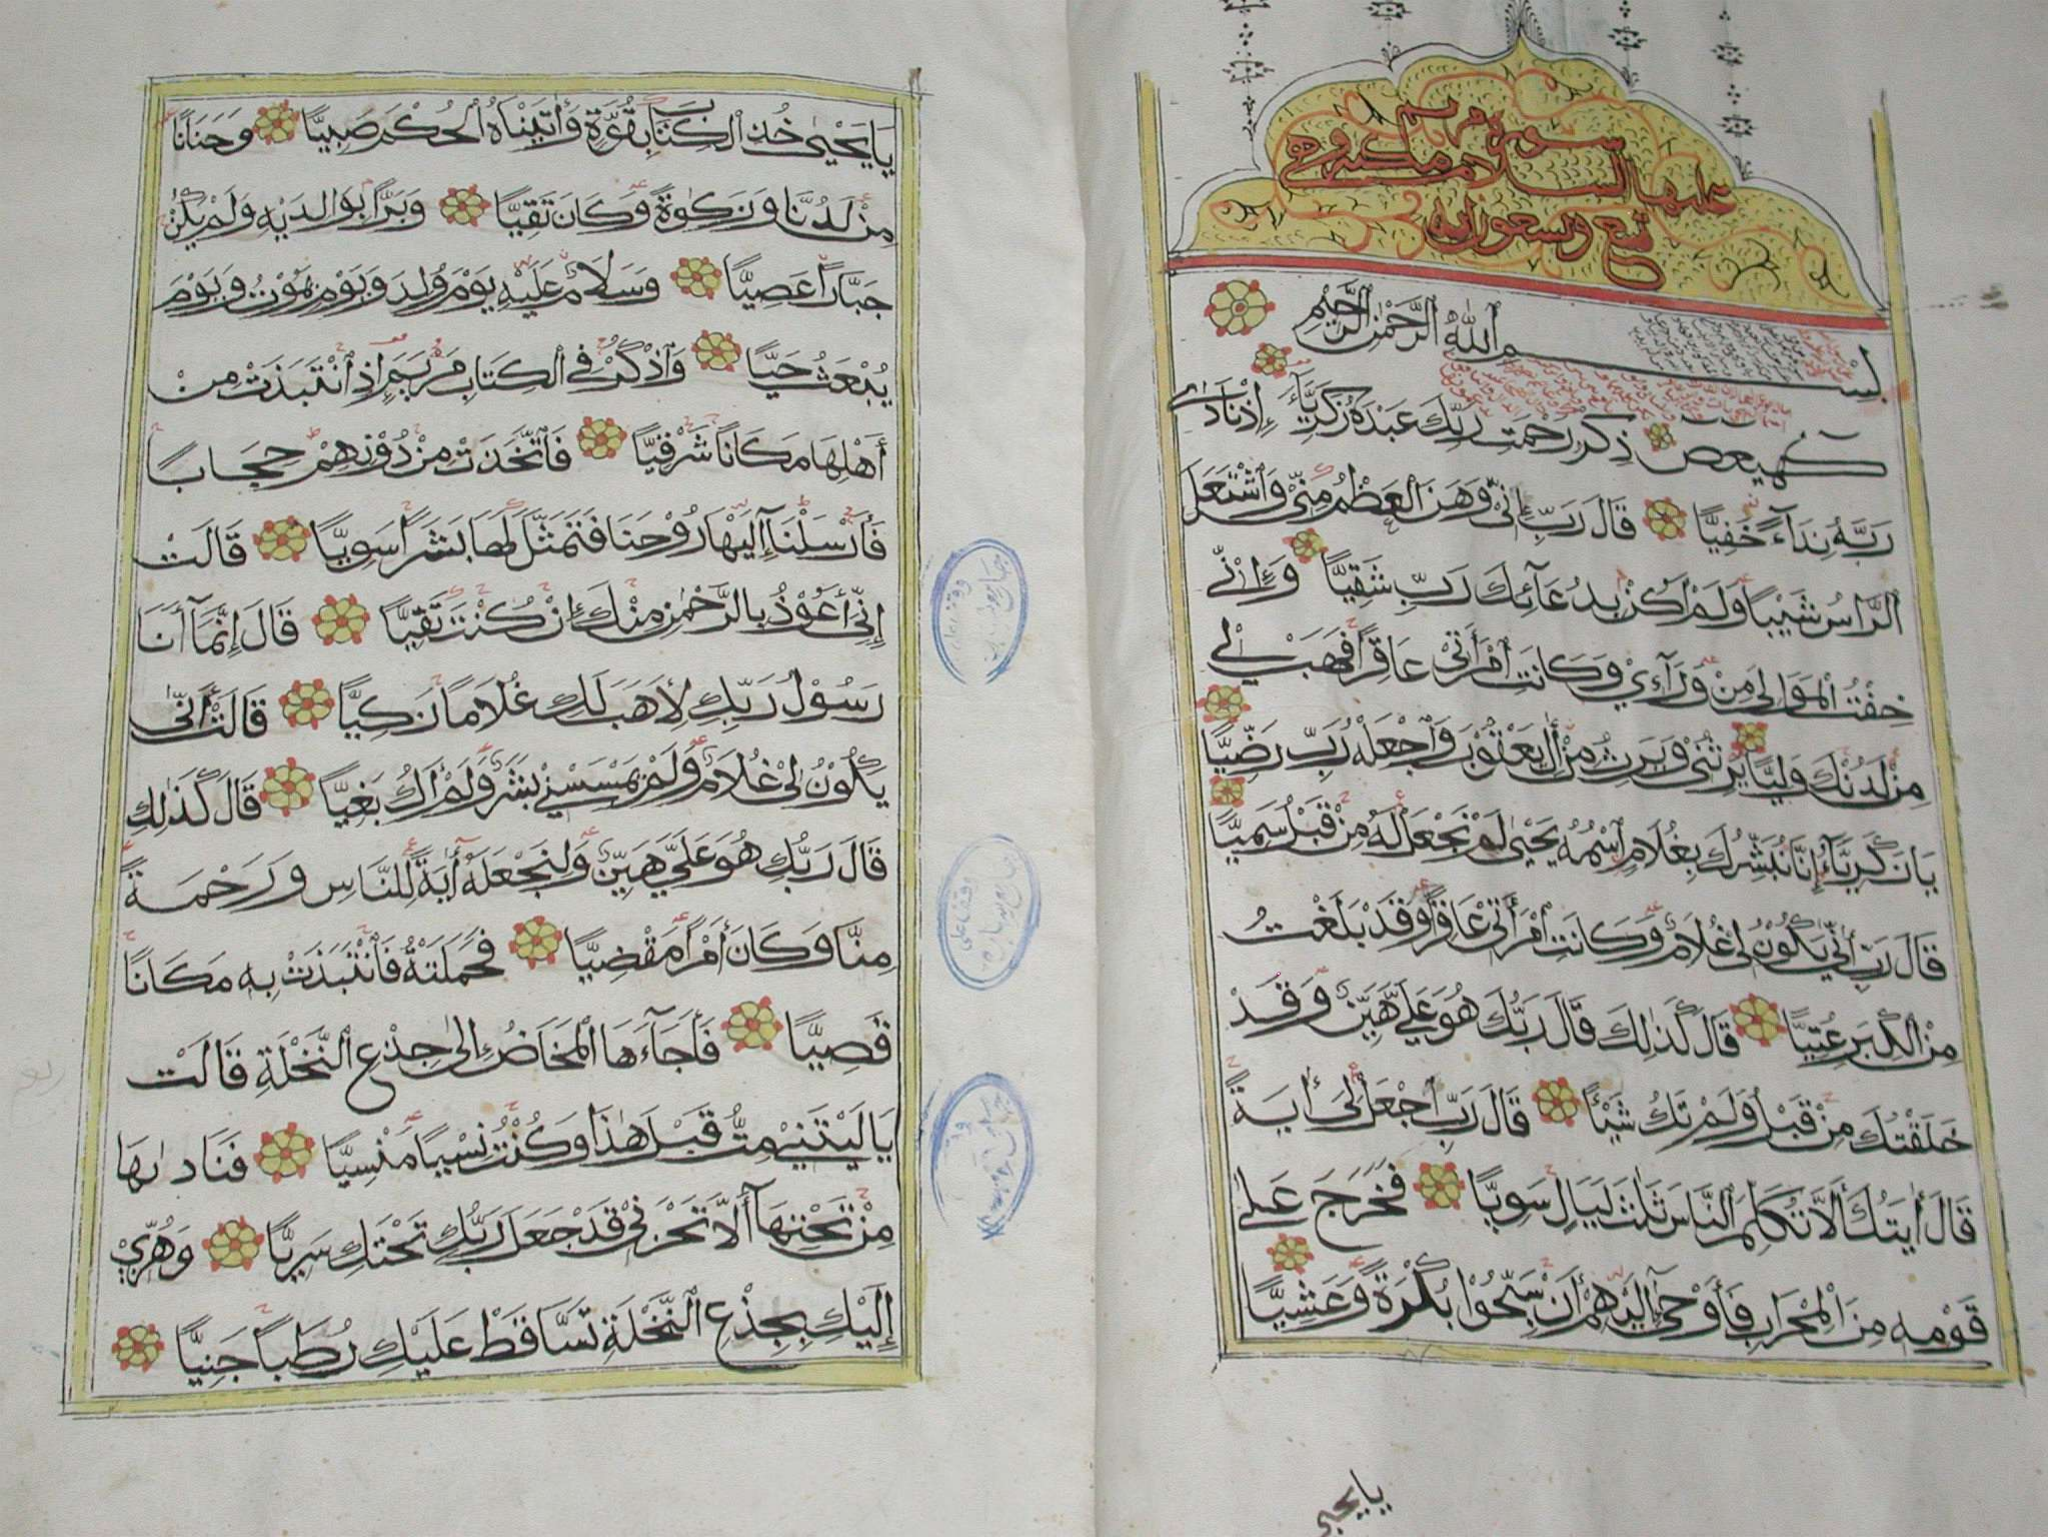 سورة مريم
عليها السلام مكية وهي
تسع وتسعون آية
بسم ٱللّٰه ٱلرَّحْمٰنِ ٱلرَّحِيْمِ
كٓهيعٓصٓ ذِكْرُ رَحْمَتِ رَبِّكَ عَبْدَهُ زَكَرِيَّآءَ إِذْ نَادَىٰ
رَبَّهُ نِدَآءً خَفِيًّا قَالَ رَبِّ إِنِّيْ وَهَنَ ٱلْعَظْمُ مِنِّيْ وَٱشْتَعَلَ
ٱلرَّأْسُ شَيْبًا وَلَمْ أَكُنْ بِدُعَآئِكَ رَبِّ شَقِيًّا وَإِنِّيْ
خِفْتُ ٱلْمَوَالِيَ مِنْ وَرَآءِيْ وَكَانَتِ ٱمْرَأَتِيْ عَاقِرًا فَهَبْ لِيْ
مِنْ لَدُنْكَ وَلِيًّا يَرِثُنِيْ وَيَرِثُ مِنْ أٰلِ يَعْقُوْبَ وَٱجْعَلْهُ رَبِّ رَضِيًّا
يَا زَكَرِيَّآءُ إِنَّا نُبَشِّرُكَ بِغُلَامٍ ٱسْمُهُ يَحْيٰى لَمْ نَجْعَلْ لَهُ مِنْ قَبْلُ سَمِيًّا
قَالَ رَبِّ أَنّٰى يَكُوْنُ لِيْ غُلَامٌ وَكَانَتِ ٱمْرَأَتِيْ عَاقِرًا وَقَدْ بَلَغْتُ
مِنَ ٱلْكِبَرِ عُتِيًّا قَالَ كَذٰلِكَ قَالَ رَبُّكَ هُوَ عَلَيَّ هَيِّنٌ وَقَدْ
خَلَقْتُكَ مِنْ قَبْلُ وَلَمْ تَكُ شَيْئًا قَالَ رَبِّ ٱجْعَلْ لِيْ أٰيَةً
قَالَ أٰيَتُكَ أَلَّا تُكَلِّمَ ٱلنَّاسَ ثَلٰثَ لَيَالٍ سَوِيًّا فَخَرَجَ عَلٰى
قَوْمِهِ مِنَ ٱلْمِحْرَابِ فَأَوْحٰٓى إِلَيْهِمْ أَنْ سَبِّحُوْا بُكْرَةً وَعَشِيًّا
يايحيى
يَا يَحْيٰى خُذِ ٱلْكِتَابَ بِقُوَّةٍ وَأٰتَيْنَاهُ ٱلْحُكْمَ صَبِيًّا وَحَنَانًا
مِنْ لَدُنَّا وَزَكٰوةً وَكَانَ تَقِيًّا وَبَرًّا بِوَالِدَيْهِ وَلَمْ يَكُنْ
جَبَّارًا عَصِيًّا وَسَلَامٌ عَلَيْهِ يَوْمَ وُلِدَ وَيَوْمَ يَمُوْتُ وَيَوْمَ
يُبْعَثُ حَيًّا وَٱذْكُرْ فِي ٱلْكِتَابِ مَرْيَمَ إِذِ ٱنْتَبَذَتْ مِنْ
أَهْلِهَا مَكَانًا شَرْقِيًّا فَٱتَّخَذَتْ مِنْ دُوْنِهِمْ حِجَابًا
فَأَرْسَلْنَآ إِلَيْهَا رُوْحَنَا فَتَمَثَّلَ لَهَا بَشَرًا سَوِيًّا قَالَتْ
إِنِّيْ أَعُوْذُ بِالرَّحْمٰنِ مِنْكَ إِنْ كُنْتَ تَقِيًّا قَالَ إِنَّمَآ أَنَا
رَسُوْلُ رَبِّكِ لِأَهَبَ لَكِ غُلَامًا زَكِيًّا قَالَتْ أَنّٰى
يَكُوْنُ لِيْ غُلَامٌ وَلَمْ يَمْسَسْنِيْ بَشَرٌ وَلَمْ أَكُ بَغِيًّا قَالَ كَذٰلِكِ
قَالَ رَبُّكِ هُوَ عَلَيَّ هَيِّنٌ وَلِنَجْعَلَهُ أٰيَةً لِلنَّاسِ وَرَحْمَةً
مِنَّا وَكَانَ أَمْرًا مَقْضِيًّا فَحَمَلَتْهُ فَٱنْتَبَذَتْ بِهِ مَكَانًا
قَصِيًّا فَأَجَآءَهَا ٱلْمَخَاضُ إِلٰى جِذْعِ ٱلنَّخْلَةِ قَالَتْ
يَا لَيْتَنِيْ مِتُّ قَبْلَ هٰذَا وَكُنْتُ نَسْيًا مَنْسِيًّا فَنَادٰىهَا
مِنْ تَحْتِهَآ أَلَّا تَحْزَنِيْ قَدْ جَعَلَ رَبُّكِ تَحْتَكِ سَرِيًّا وَهُزِّيْ
إِلَيْكِ بِجِذْعِ ٱلنَّخْلَةِ تَسَّاقَطْ عَلَيْكِ رُطَبًا جَنِيًّا